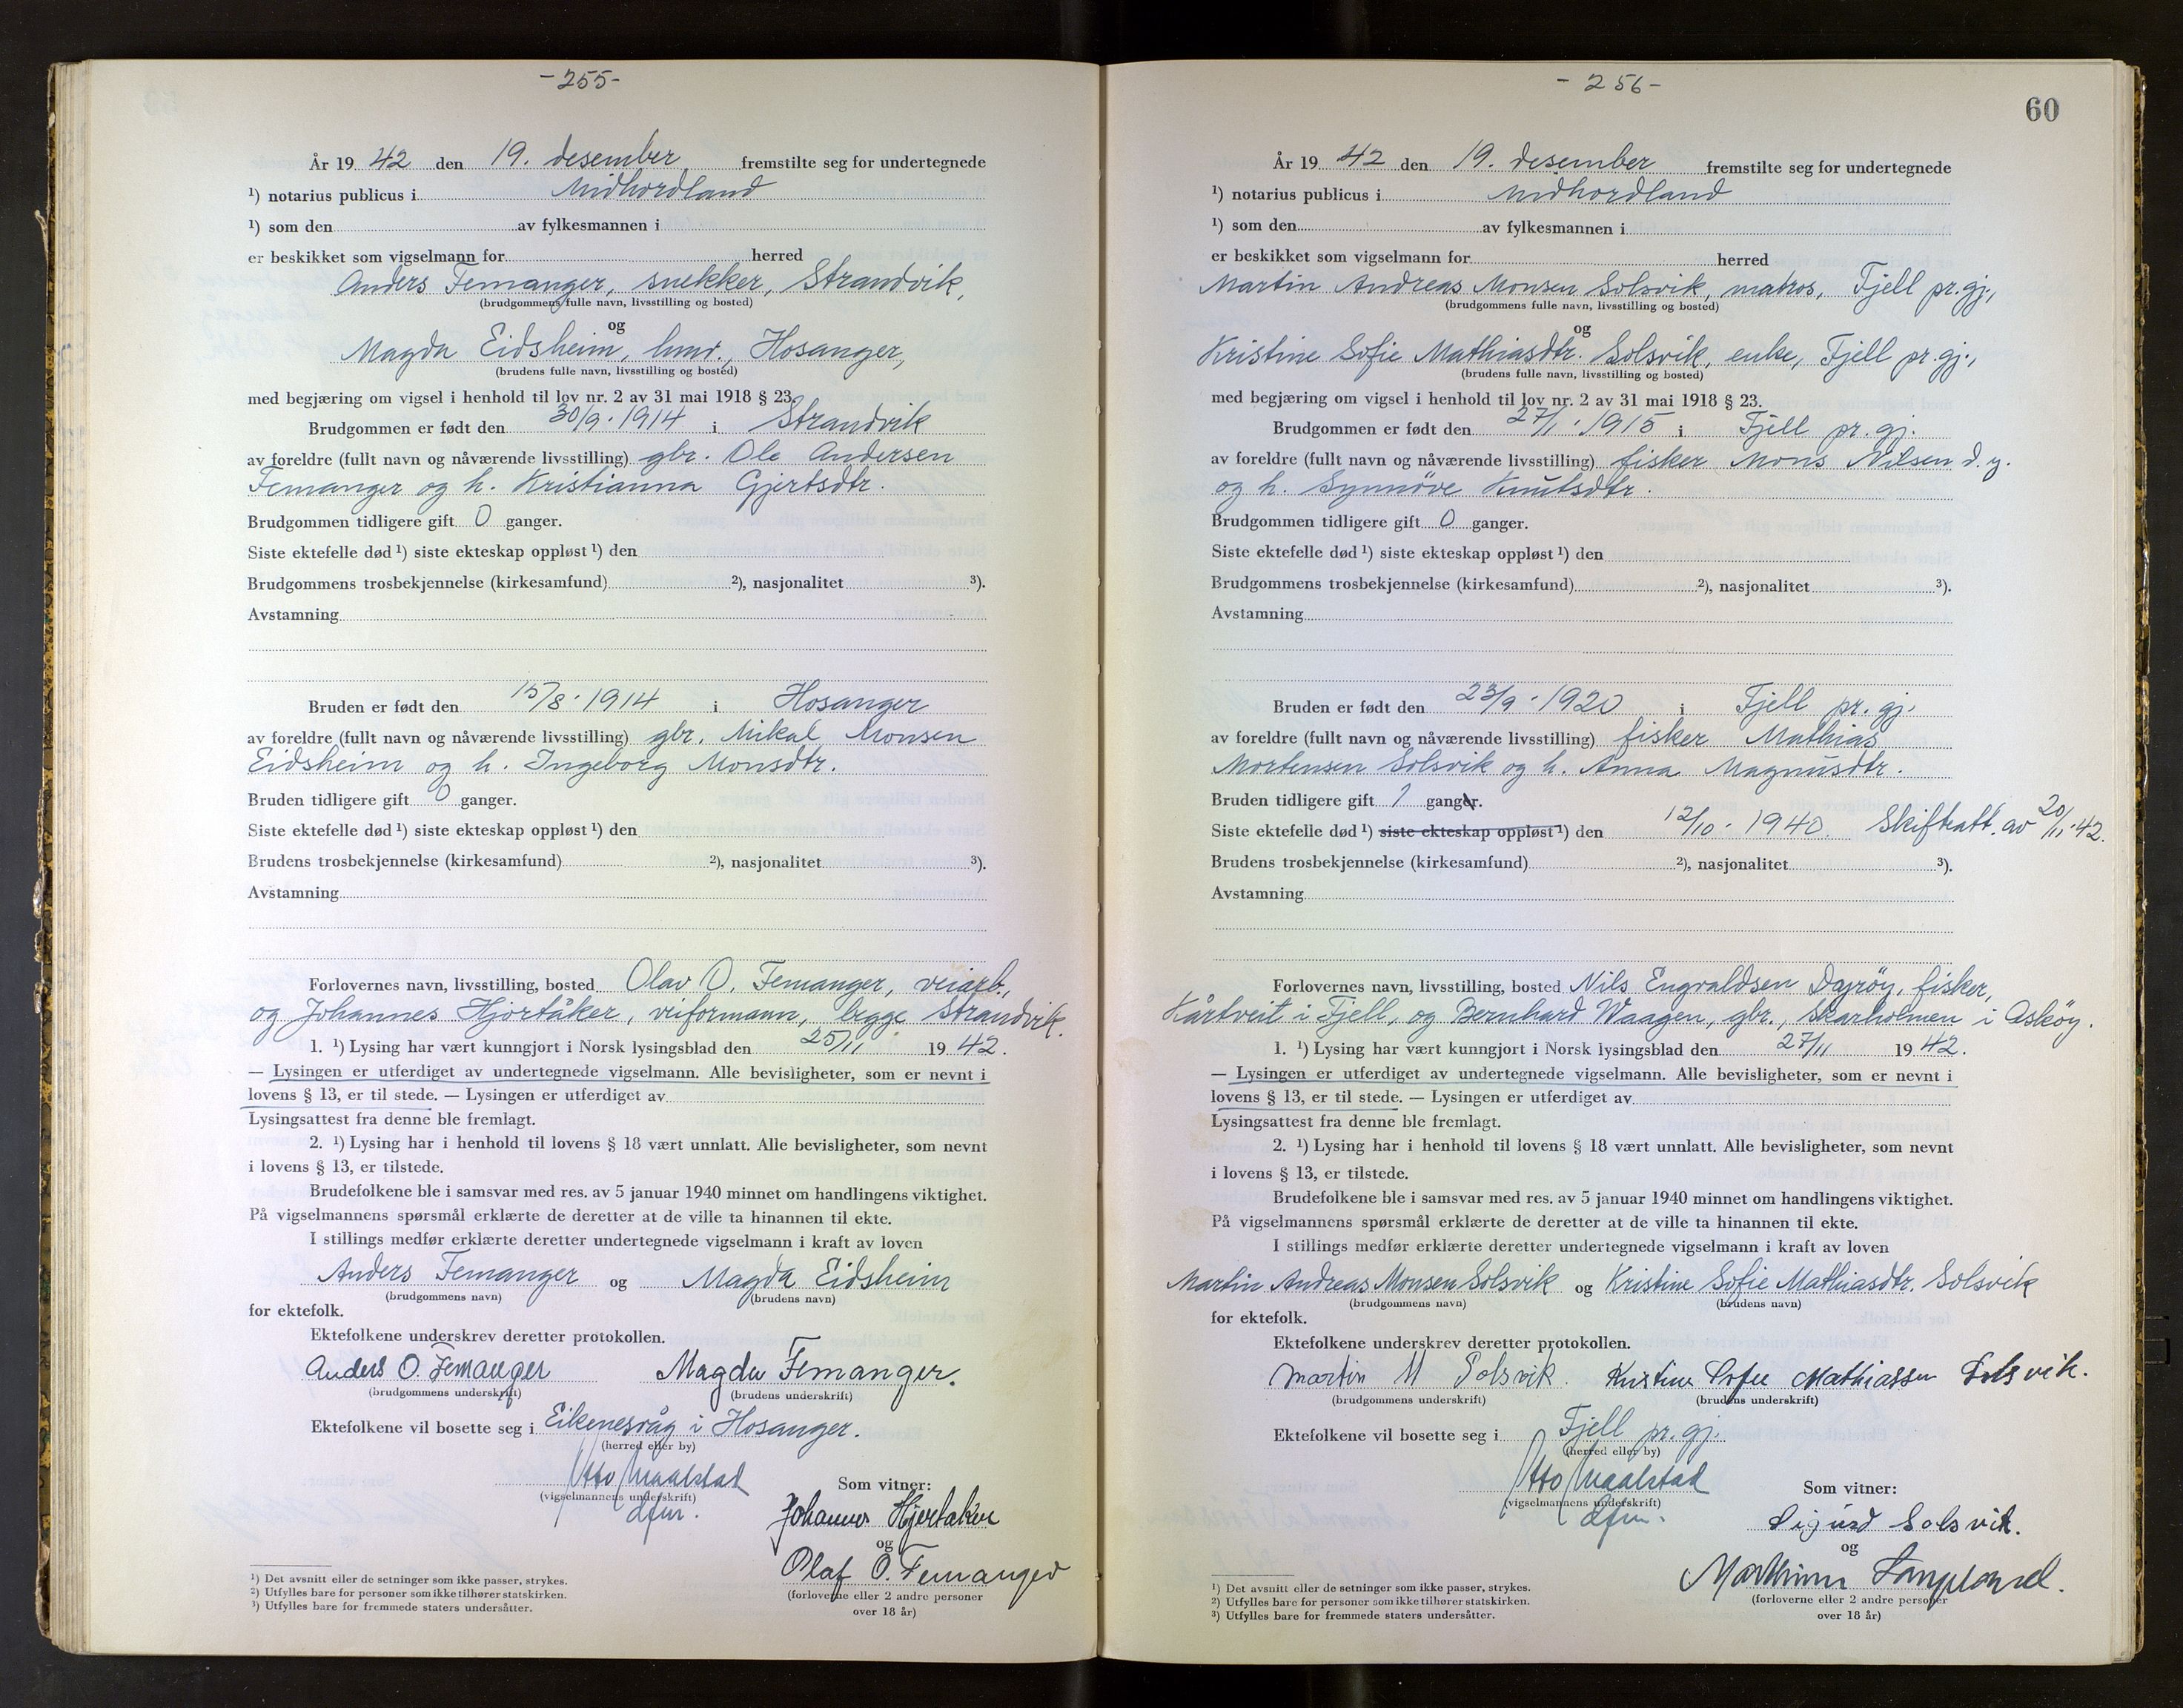 -255-
År 19 42 den 19. desember fremstilte seg for undertegnede
¹) notarius publicus i Midhordland
¹) som den av fylkesmannen i
er beskikket som vigselmann for herred
Anders Femanger, snekker, Strandvik,
(brudgommens fulle navn, livsstilling og bosted)
og
Magda Eidsheim, hmv., Hosanger,
(brudens fulle navn, livsstilling og bosted)
med begjæring om vigsel i henhold til lov nr. 2 av 31 mai 1918 § 23.
Brudgommen er født den 30/9. 1914 i Strandvik
av foreldre (fullt navn og nåværende livsstilling) gbr. Ole Andersen
Femanger og h. Kristianna Gjertsdtr.
Brudgommen tidligere gift 0 ganger.
Siste ektefelle død ¹) siste ekteskap oppløst ¹) den
Brudgommens trosbekjennelse (kirkesamfund) ²), nasjonalitet ³).
Avstamning
Bruden er født den 15/8. 1914 i Hosanger
av foreldre (fullt navn og nåværende livsstilling) gbr. Mikal Monsen
Eidsheim og h. Ingeborg Monsdtr.
Bruden tidligere gift 0 ganger.
Siste ektefelle død ¹) siste ekteskap oppløst ¹) den
Brudens trosbekjennelse (kirkesamfund) ²), nasjonalitet ³).
Avstamning
Forlovernes navn, livsstilling, bosted Olav O. Femanger, veiarb.,
og Johannes Hjortåker, veiformann, begge Strandvik.
1. ¹) Lysing har vært kunngjort i Norsk lysingsblad den 25/11 19 42.
— Lysingen er utferdiget av undertegnede vigselmann. Alle bevisligheter, som er nevnt i
lovens § 13, er til stede. — Lysingen er utferdiget av
Lysingsattest fra denne ble fremlagt.
2. ¹) Lysing har i henhold til lovens § 18 vært unnlatt. Alle bevisligheter, som nevnt
i lovens § 13, er tilstede.
Brudefolkene ble i samsvar med res. av 5 januar 1940 minnet om handlingens viktighet.
På vigselmannens spørsmål erklærte de deretter at de ville ta hinannen til ekte.
I stillings medfør erklærte deretter undertegnede vigselmann i kraft av loven
Anders Femanger og Magda Eidsheim
(brudgommens navn) (brudens navn)
for ektefolk.
Ektefolkene underskrev deretter protokollen.
Anders O. Femanger Magda Femanger.
(brudgommens underskrift) (brudens underskrift)
Ektefolkene vil bosette seg i Eikenesvåg i Hosanger.
(herred eller by)
Otto Maalstad
(vigselmannens underskrift)
dfm.
Som vitner:
Johannes Hjortåker
og
Olaf O. Femanger
(forloverne eller 2 andre personer
over 18 år)
¹) Det avsnitt eller de setninger som ikke passer, strykes.
²) Utfylles bare for personer som ikke tilhører statskirken.
³) Utfylles bare for fremmede staters undersåtter.
- 256-
60
År 19 42 den 19. desember fremstilte seg for undertegnede
¹) notarius publicus i Midhordland
¹) som den av fylkesmannen i
er beskikket som vigselmann for herred
Martin Andreas Monsen Solsvik, matros, Fjell pr.gj.,
(brudgommens fulle navn, livsstilling og bosted)
og
Kristine Sofie Mathiasdtr. Solsvik, enke, Fjell pr.gj.,
(brudens fulle navn, livsstilling og bosted)
med begjæring om vigsel i henhold til lov nr. 2 av 31 mai 1918 § 23.
Brudgommen er født den 27/1. 1915 i Fjell pr. gj.
av foreldre (fullt navn og nåværende livsstilling) fisker Mons Nilsen d. y.
og h. Synnöve Knutsdtr.
Brudgommen tidligere gift 0 ganger.
Siste ektefelle død ¹) siste ekteskap oppløst ¹) den
Brudgommens trosbekjennelse (kirkesamfund) ²), nasjonalitet ³).
Avstamning
Bruden er født den 23/9. 1920 i Fjell pr. gj.
av foreldre (fullt navn og nåværende livsstilling) fisker Mathias
Mortensen Solsvik og h. Anna Magnusdtr.
Bruden tidligere gift 1 ganger.
Siste ektefelle død ¹) siste ekteskap oppløst ¹) den 12/10. 1940. Skifteatt. av 20/11.42.
Brudens trosbekjennelse (kirkesamfund) ²), nasjonalitet ³).
Avstamning
Forlovernes navn, livsstilling, bosted Nils Engvaldsen Døsöy, fisker,
Kårtveit i Fjell, og Bernhard Waagen, gbr., Skarholmen i Asköy.
1. ¹) Lysing har vært kunngjort i Norsk lysingsblad den 27/11 19 42.
— Lysingen er utferdiget av undertegnede vigselmann. Alle bevisligheter, som er nevnt i
lovens § 13, er til stede. — Lysingen er utferdiget av
Lysingsattest fra denne ble fremlagt.
2. ¹) Lysing har i henhold til lovens § 18 vært unnlatt. Alle bevisligheter, som nevnt
i lovens § 13, er tilstede.
Brudefolkene ble i samsvar med res. av 5 januar 1940 minnet om handlingens viktighet.
På vigselmannens spørsmål erklærte de deretter at de ville ta hinannen til ekte.
I stillings medfør erklærte deretter undertegnede vigselmann i kraft av loven
Martin Andreas Monsen Solsvik og Kristine Sofie Mathiasdtr. Solsvik
(brudgommens navn) (brudens navn)
for ektefolk.
Ektefolkene underskrev deretter protokollen.
Martin M Solsvik. Kristine Sofie Mathiassen Solsvik.
(brudgommens underskrift) (brudens underskrift)
Ektefolkene vil bosette seg i Fjell pr. gj.
(herred eller by)
Otto Maalstad
(vigselmannens underskrift)
dfm.
Som vitner:
Sigurd Solsvik.
og
(forloverne eller 2 andre personer
over 18 år)
¹) Det avsnitt eller de setninger som ikke passer, strykes.
²) Utfylles bare for personer som ikke tilhører statskirken.
³) Utfylles bare for fremmede staters undersåtter.